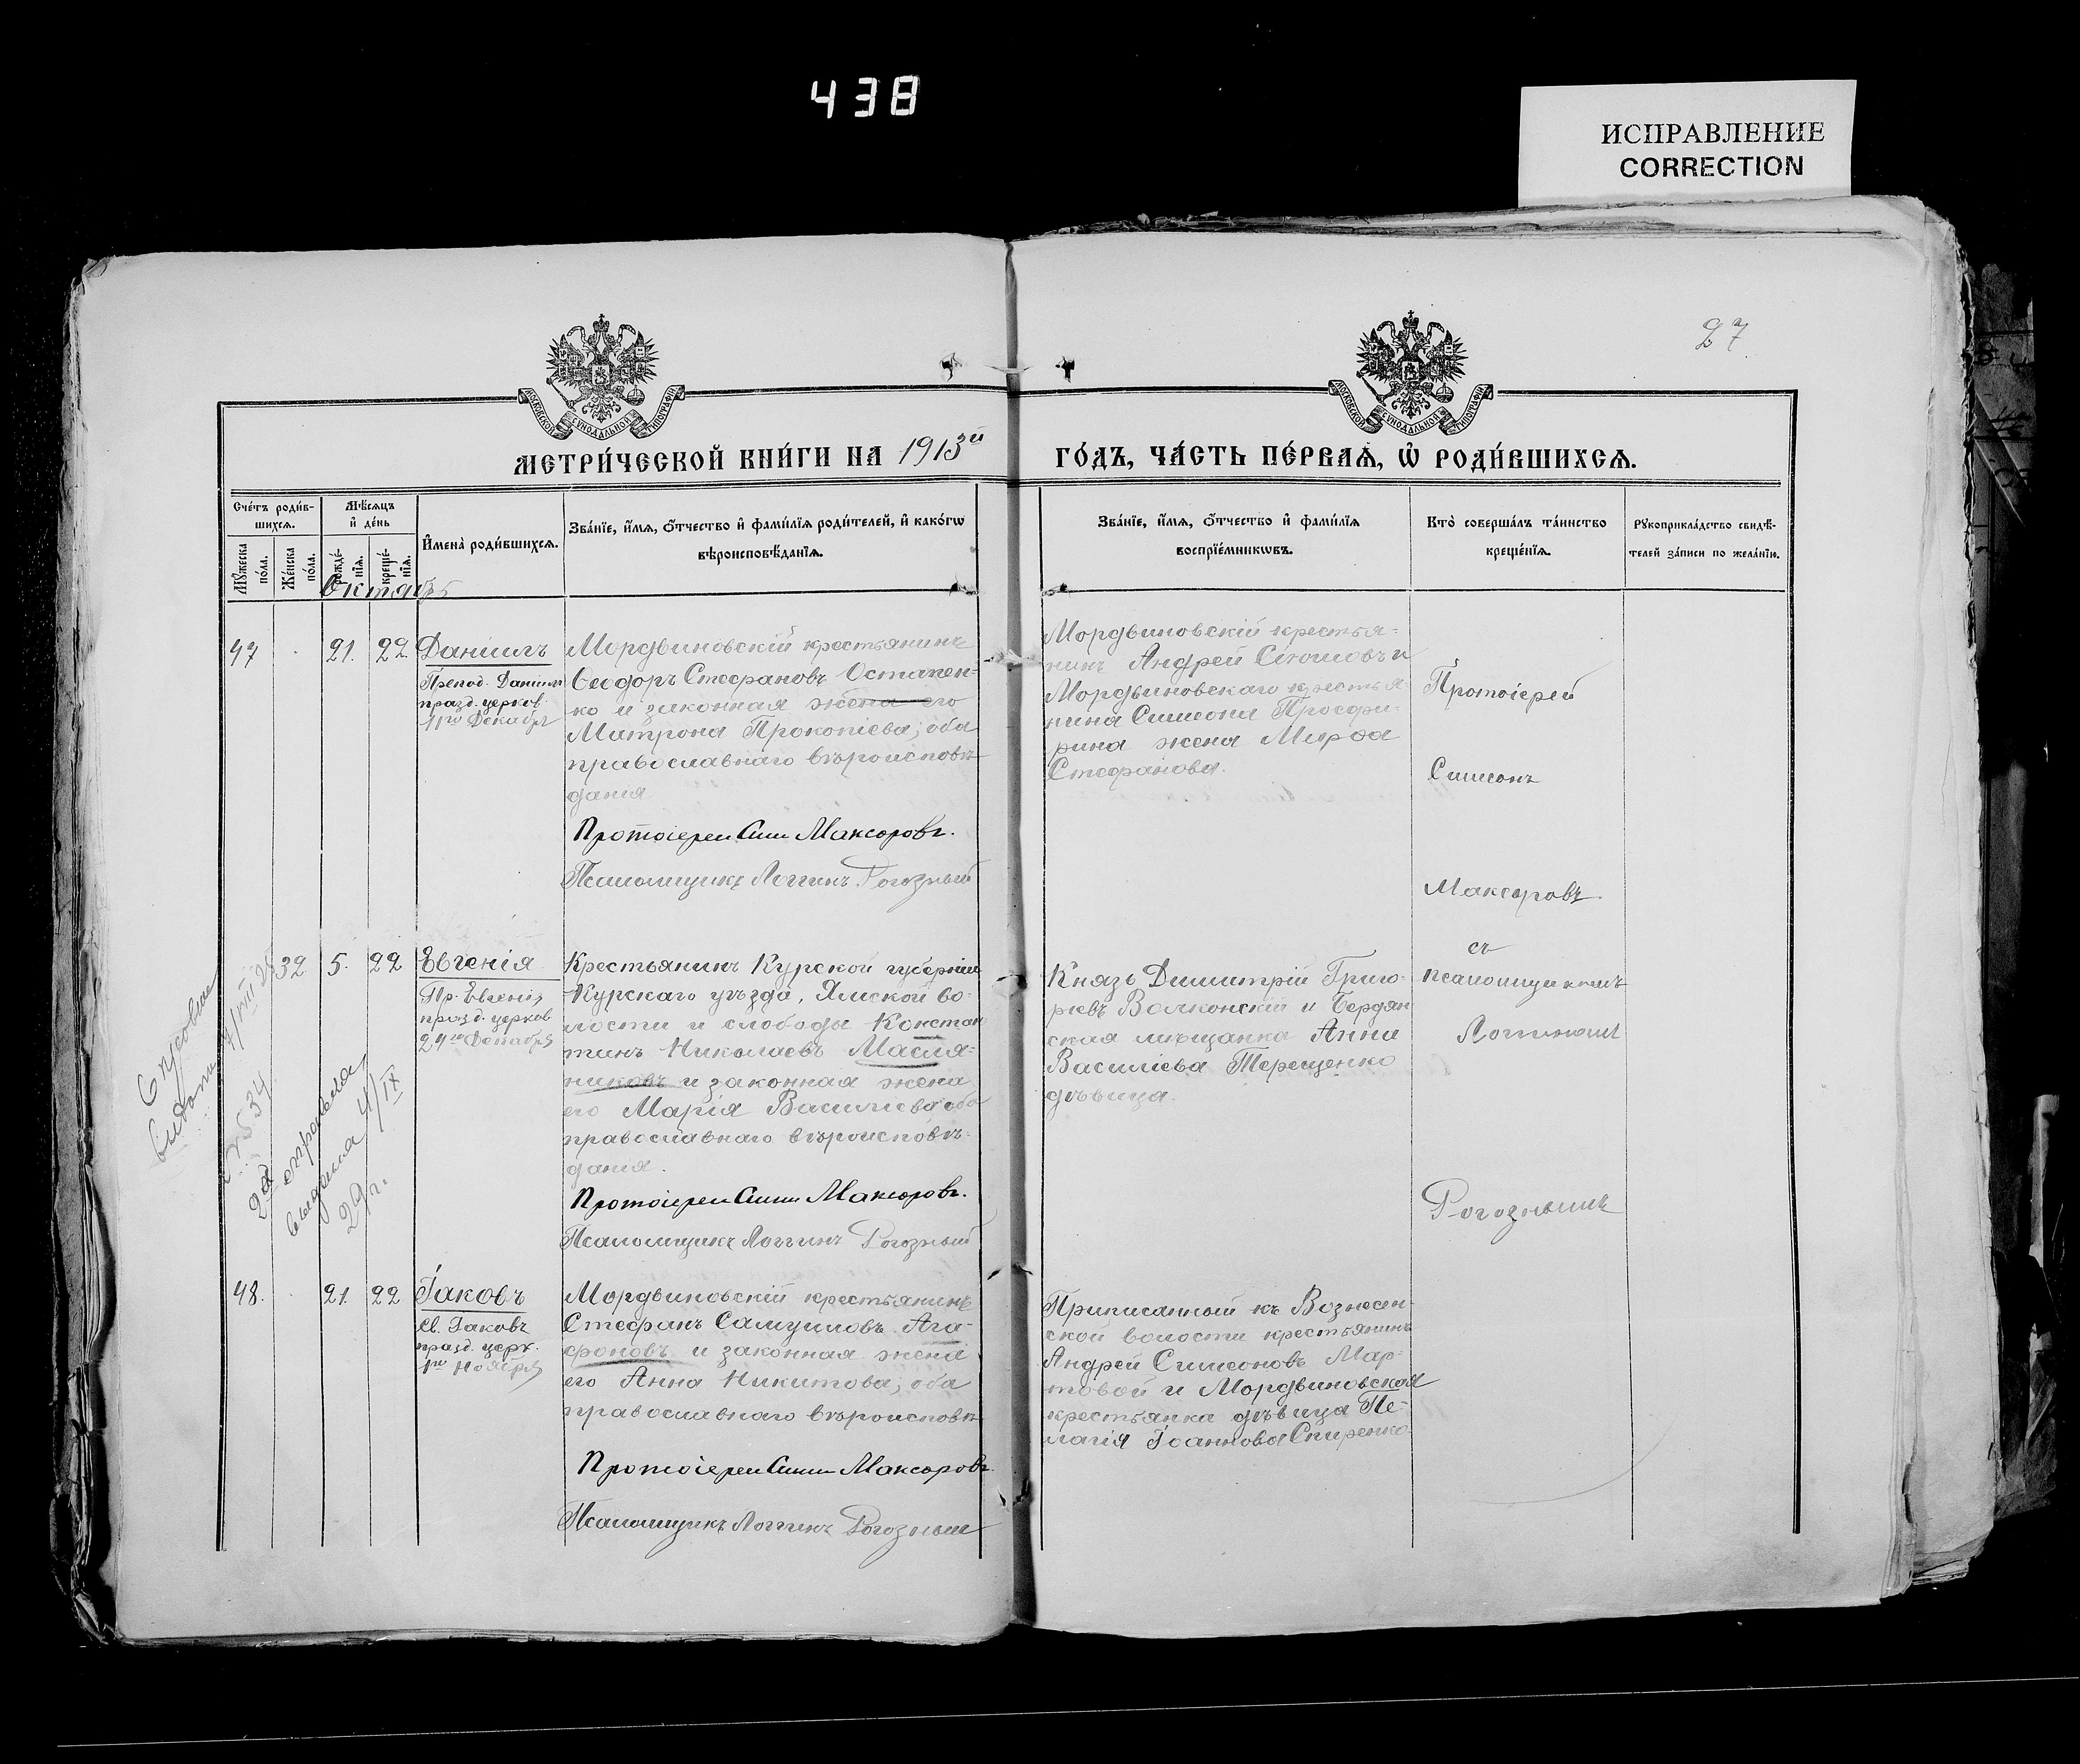 438
ИСПРАВЛЕНИЕ
CORRECTION
27
МОСКОВСКОЙ СѴНОДАЛЬНОЙ ТИПОГРАФІИ
МОСКОВСКОЙ СѴНОДАЛЬНОЙ ТИПОГРАФІИ
МЕТРИ́ЧЕСКОЙ КНИ́ГИ НА 1913й ГО́ДЪ, ЧА́СТЬ ПЕ́РВАѦ, Ѡ҆ РОДИ́ВШИХСѦ.
Сче́тъ роди́в-
шихсѧ.
Мꙋ́жеска по́ла.
Же́нска по́ла.
Мѣ́сѧцъ
и҆ де́нь
рожде́-
нїѧ.
креще́-
нїѧ.
И҆мена̀ роди́вшихсѧ.
Зва́нїе, и҆́мѧ, ѻ҆́тчество и҆ фами́лїѧ роди́телей, и҆ како́гѡ
вѣроисповѣ́данїѧ.
Зва́нїе, и҆́мѧ, ѻ҆́тчество и҆ фами́лїѧ
воспрїе́мникѡвъ.
Кто̀ соверша́лъ та́инство
креще́нїѧ.
Рꙋкоприкла́дство свидѣ́-
телей за́писи по жела́нїю.
Октябрь
47
21.
22.
Даніилъ
Препод. Даніилъ
празд. церков.
11го Декабря
Мордвиновскій крестьянинъ
Ѳеодоръ Стефановъ Остапен-
ко и законная жена его
Матрона Прокопіева, оба
православнаго вѣроисповѣ-
данія
Протоіерей Сим Максоровъ.
Псаломщикъ Логгинъ Рогозный
Мордвиновскій крестья-
нинъ Андрей и
Мордвиновскаго крестья-
нина Симеона
жена Марѳа
Стефанова.
Протоіерей
Симеонъ
Максоровъ
съ
псаломщикомъ
Логгиномъ
Рогознымъ
32
5.
22
Евгенія
Пр. Евгенія
празд. церков
24го Декабря
Крестьянинъ Курской губерніи
Курскаго уѣзда, Ямской во-
лости и слободы Констан
тинъ Николаевъ Масля-
никовъ и законная жена
его Марія Василіева оба
православнаго вѣроисповѣ-
данія.
Протоіерей Сим Максоровъ.
Псаломщикъ Логгинъ Рогозный
Князь Димитрій Григо-
рьевъ Волконскій и Бердян
ская мѣщанка Анна
Василіева Терещенко
дѣвица.
выдана 7/VIII 25
№ 534
2я справка
выдана 4/IX
29г.
48.
21.
22
Іаковъ
Св. Іаковъ
празд. церк.
1го Ноября
Мордвиновскій крестьянинъ
Стефанъ Самуиловъ Ага-
фоновъ и законная жена
его Анна Никитова, оба
православнаго вѣроисповѣ
Протоіерей Сим Максоровъ
Псаломщикъ Логгинъ Рогозный
Приписанный къ Вознесен-
ской волости крестьянинъ
Андрей Симеоновъ Мар-
товой и Мордвиновская
крестьянка дѣвица Пе-
лагія Іоаннова Спиренко